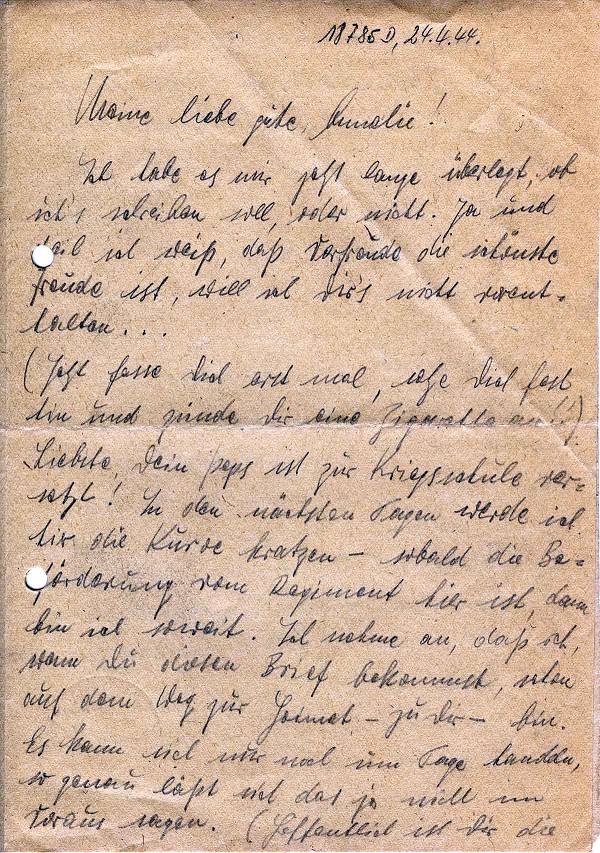 18785D, 24.4.44.
Meine liebe gute Annelie!
Ich habe es mir jetzt lange überlegt, ob
ich's schreiben soll, oder nicht. Ja und
weil ich weiß, daß Vorfreude die schönste
Freude ist, will ich Dir's nicht vorent-
halten...
(Jetzt fasse Dich erst mal, setze Dich fest
hin und zünde Dir eine Zigarette an!!)
Liebste, Dein peps ist zur Kriegsschule ver-
setzt! In den nächsten Tagen werde ich
hir die Kurve kratzen – sobald die Be-
förderung vom Regiment hier ist, dann
bin ich soweit. Ich nehme an, daß ich,
wenn Du diesen Brief bekommst, schon
auf dem Weg zur Heimat – zu Dir – bin.
Es kann sich nur noch um Tage handeln,
so genau läßt sich das ja nicht im
Voraus sagen. (Hoffentlich ist Dir die